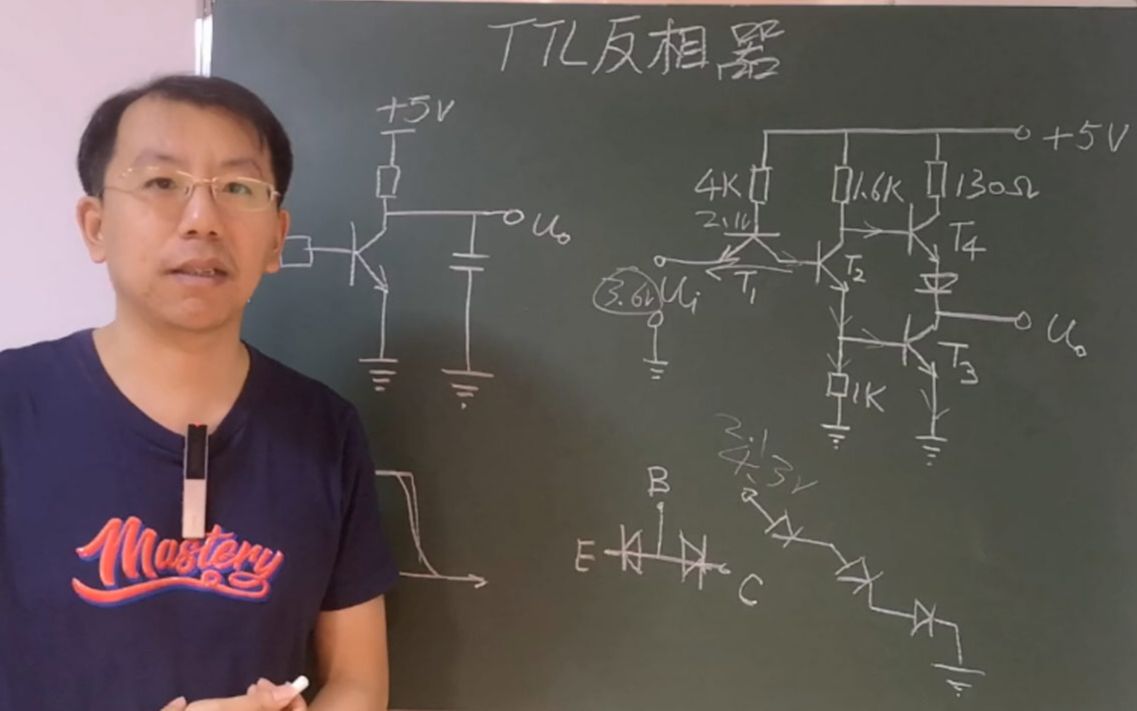 TTL反相器
+5V
U₀
+5V
4K
1.6K
130Ω
2.1V
T₁
T₂
T₄
3.6V
Uᵢ
U₀
T₃
1K
2.1
4.3V
B
E
C
Mastery